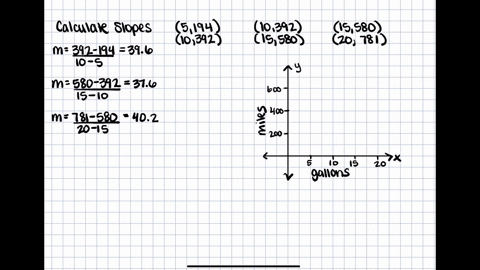 Calculate Slopes
(5,194) (10,392) (15,580)
(10,392) (15,580) (20, 781)
m = 392-194 = 39.6
10-5
m = 580-392 = 37.6
15-10
m = 781-580 = 40.2
20-15
y
600
400
200
miles
5 10 15 20 x
gallons